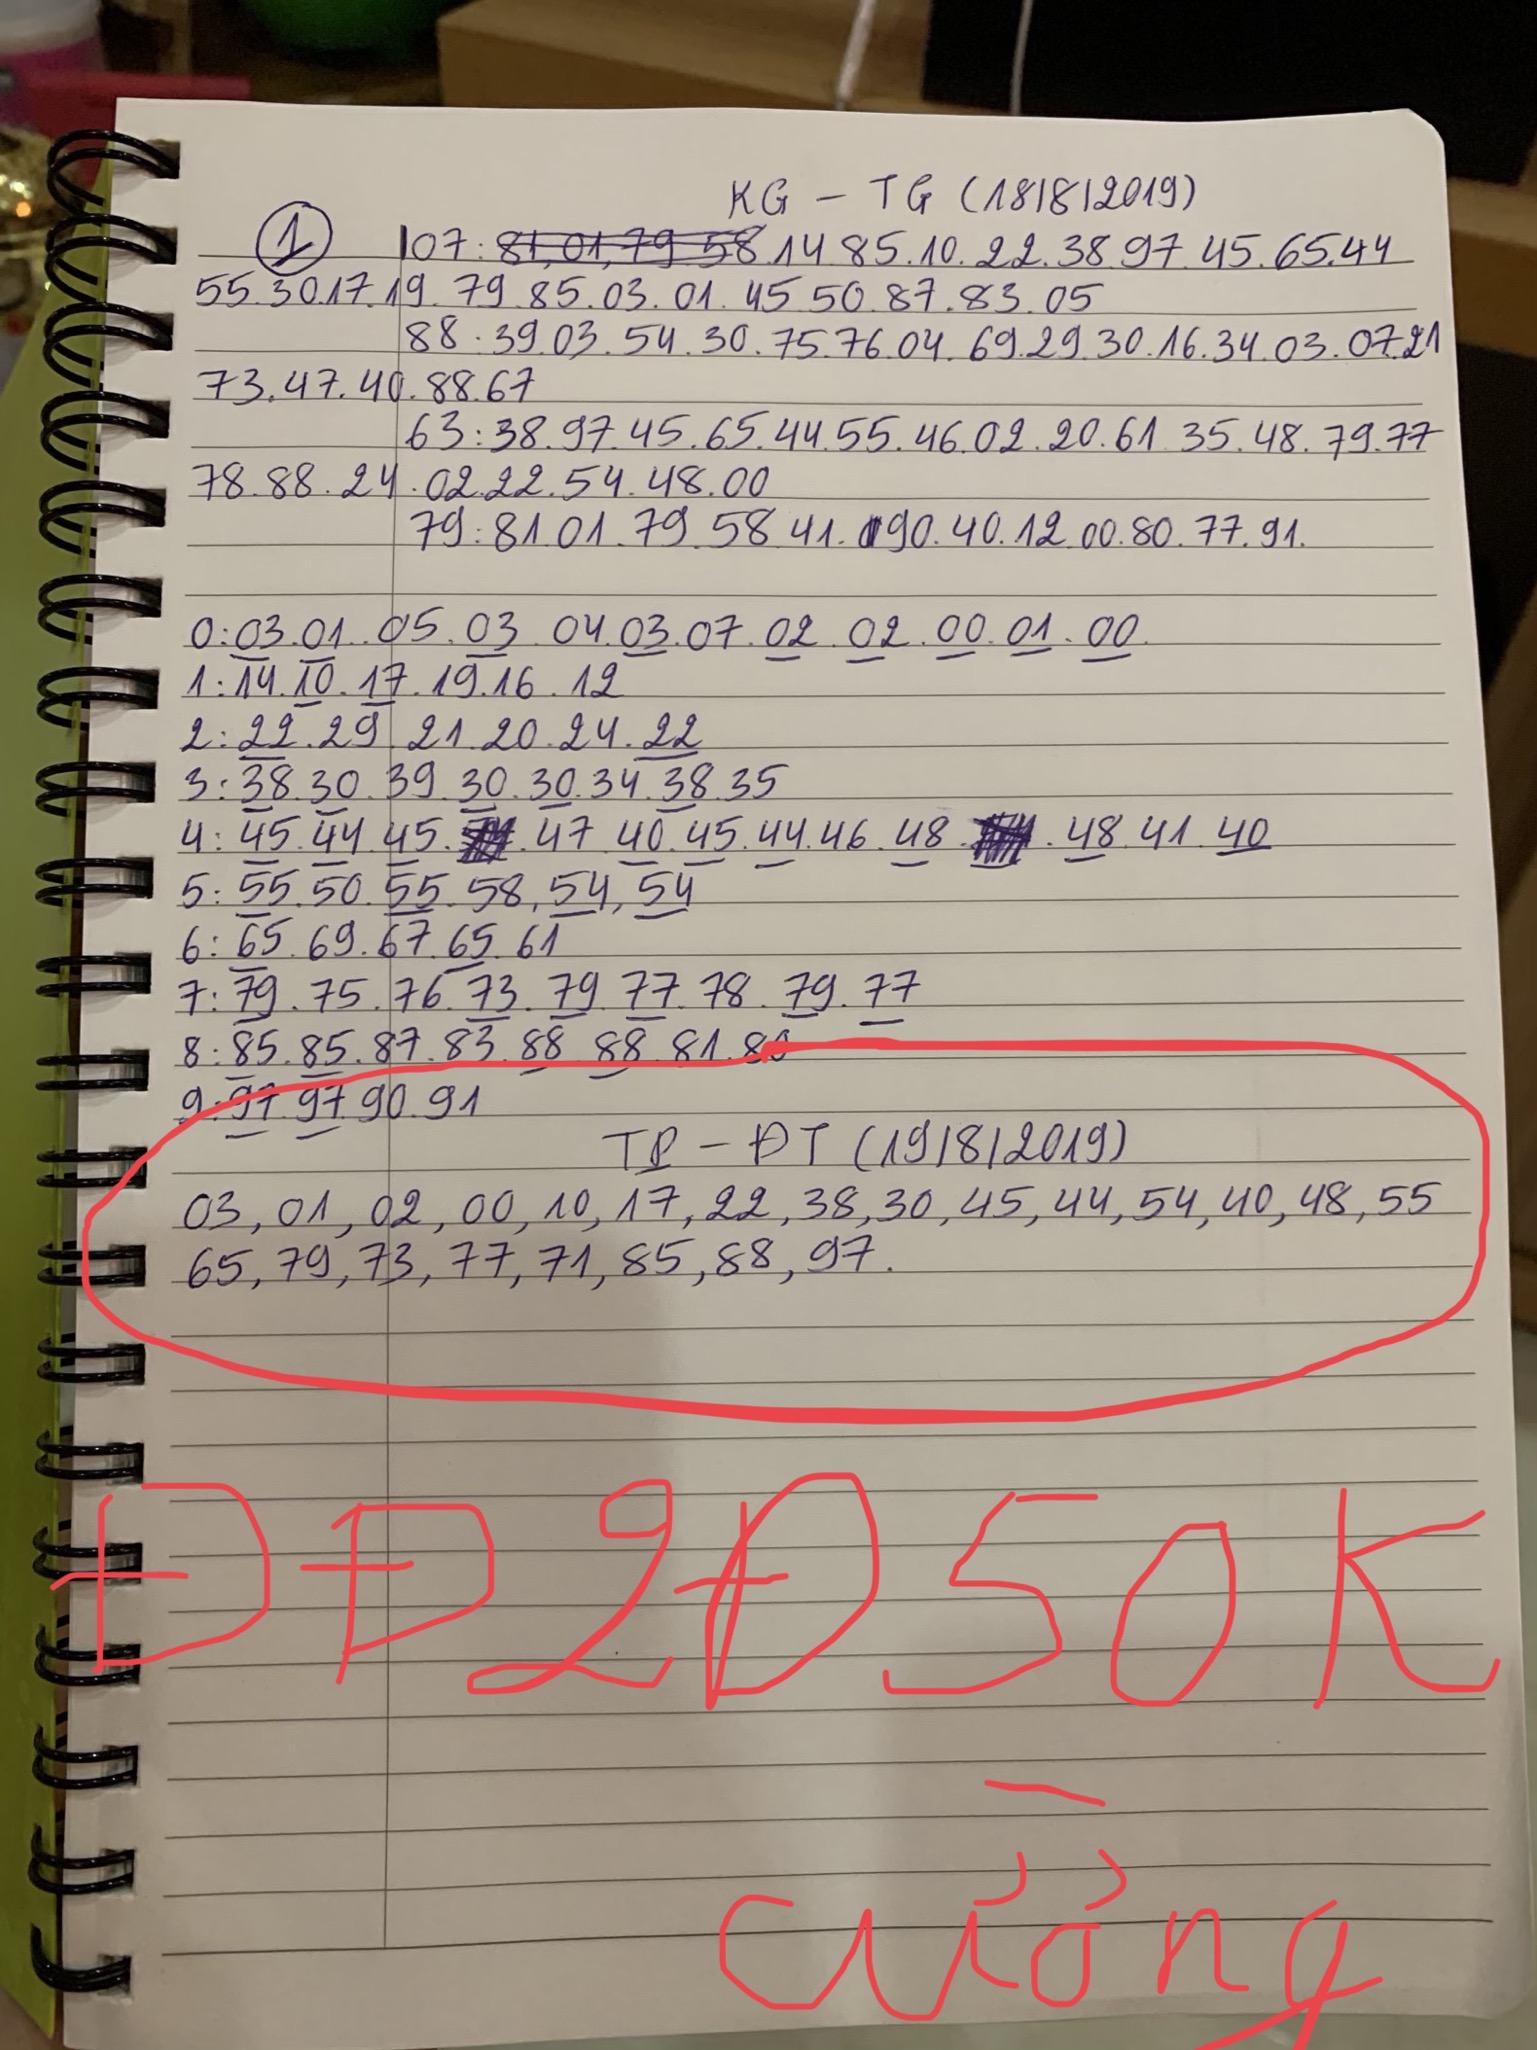 KG - TG (18/8/2019)
1 107: 81,01,79.58.14.85.10.22.38.97.45.65.44
55.30.17.19.79.85.03.01.45.50.87.83.05
88:39.03.54.30.75.76.04.69.29.30.16.34.03.07.21
73.47.40.88.67
63:38.97.45.65.44.55.46.02.20.61.35.48.79.77
78.88.24.02.22.54.48.00
79:81.01.79.58.41.90.40.12.00.80.77.91.
0:03.01.05.03.04.03.07.02.02.00.01.00.
1:14.10.17.19.16.12
2:22.29.21.20.24.22
3:38.30.39.30.30.34.38.35
4:45.44.45. .47.40.45.44.46.48. .48.41.40
5:55.50.55.58,54,54
6:65.69.67.65.61
7:79.75.76.73.79.77.78.79.77
8:85.85.87.83.88.88.81.80
9:97.97.90.91
TP - ĐT (19/8/2019)
03,01,02,00,10,17,22,38,30,45,44,54,40,48,55
65,79,73,77,71,85,88,97.
ĐĐ2Đ50K